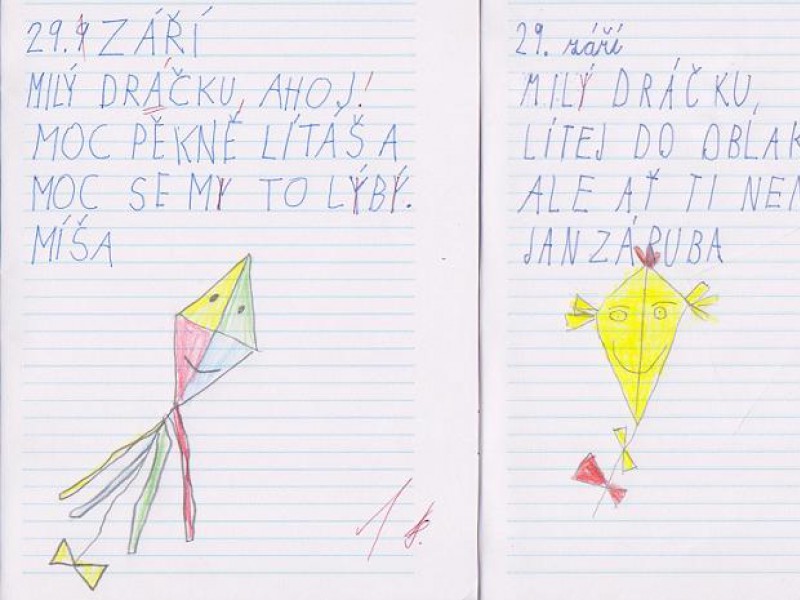 29. ZÁŘÍ
MILÝ DRÁČKU, AHOJ!
MOC PĚKNĚ LÍTÁŠ A
MOC SE MY TO LÝBÝ.
MÍŠA
1
29. září
MILÝ DRÁČKU,
LÍTEJ DO OBLAK
ALE AŤ TI NEN
JAN ZÁRUBA